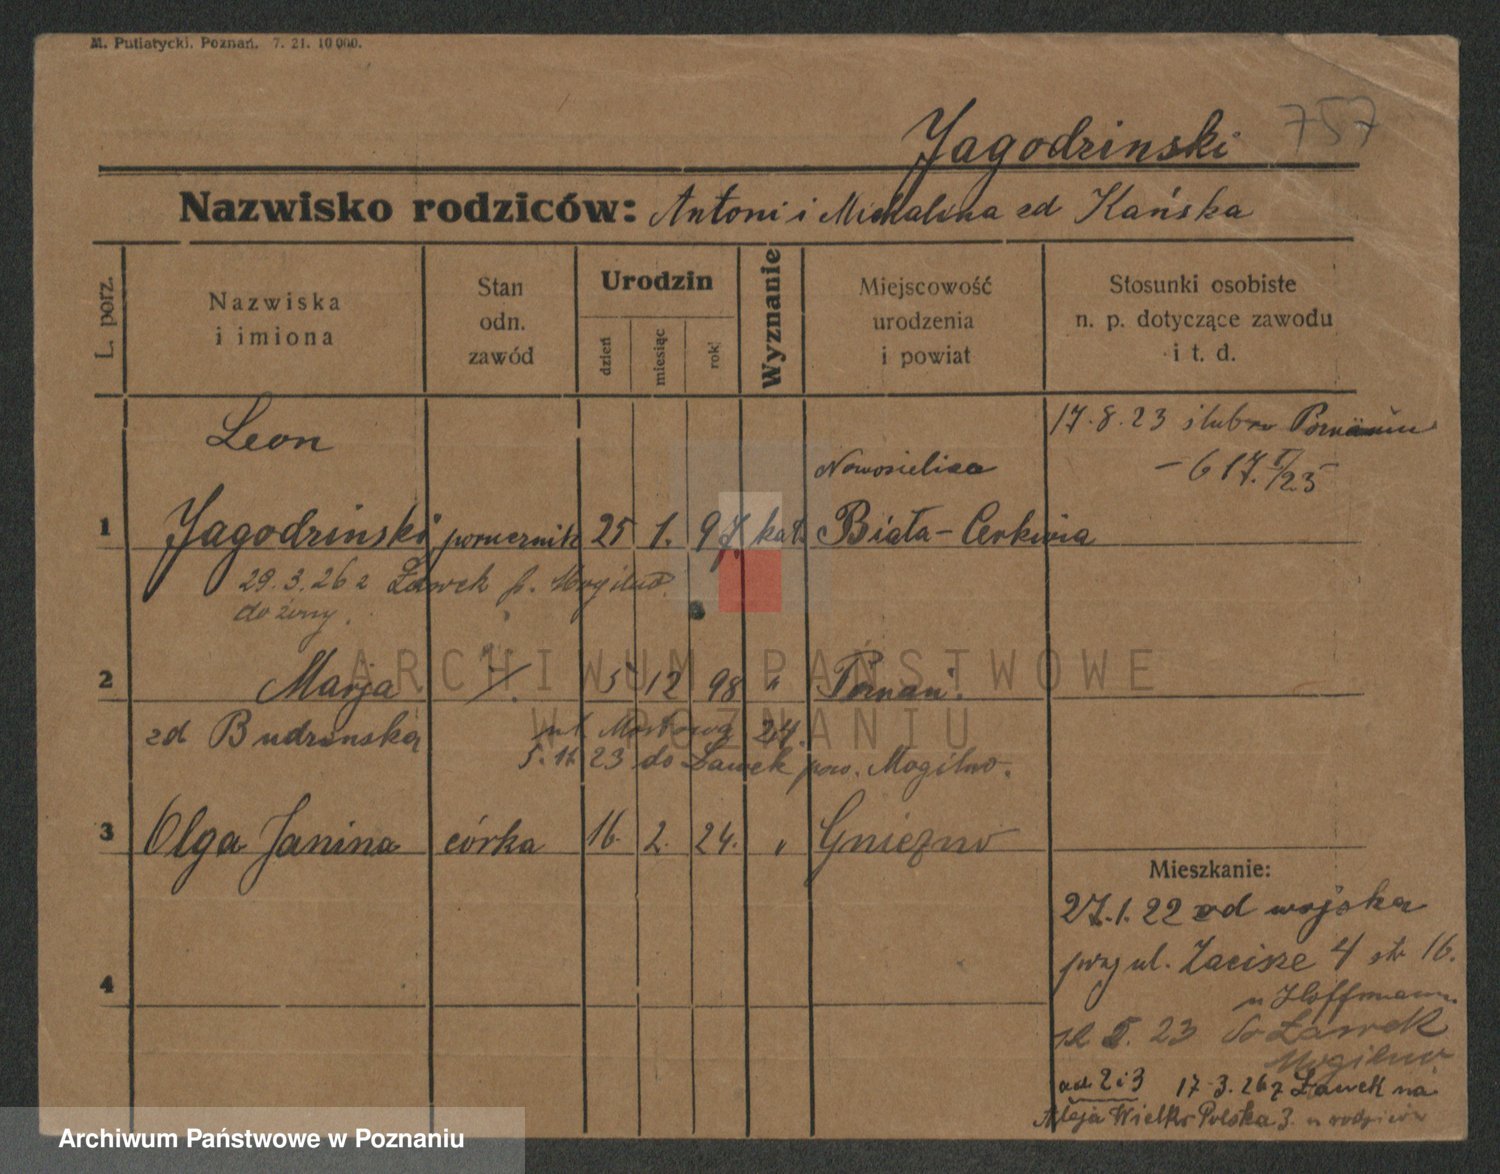 M. Putiatycki, Poznań. 7. 21. 10 000.
Jagodzinski 757
Nazwisko rodziców: Antoni i Michalina zd Kańska
L. porz.
Nazwiska
i imiona
Stan
odn.
zawód
Urodzin
dzień
miesiąc
rok
Wyznanie
Miejscowość
urodzenia
i powiat
Stosunki osobiste
n. p. dotyczące zawodu
i t. d.
Leon
17.8.23 ślub w Poznaniu
Nowosielica
1 Jagodzinski porucznik 25 1. 97. kat. Biała-Cerkwia
29.3.26 z Ławek p. Mogilno.
do żony.
2 Marja 5 12 98 " Poznań.
zd Budzńska ul. Mostowa 24.
5.12 23 do Ławek pow. Mogilno.
3 Olga Janina córka 16. 2. 24. " Gniezno
Mieszkanie:
27.1.22 od wojska
przy ul. Zacisze 4 str 16.
u Hoffmann.
4
23 do Ławek
Mogilno
ad 2 i 3 17.3.26 z Ławek na
Aleja Wielko Polska 3. u rodziców
ARCHIWUM PAŃSTWOWE
W POZNANIU
Archiwum Państwowe w Poznaniu